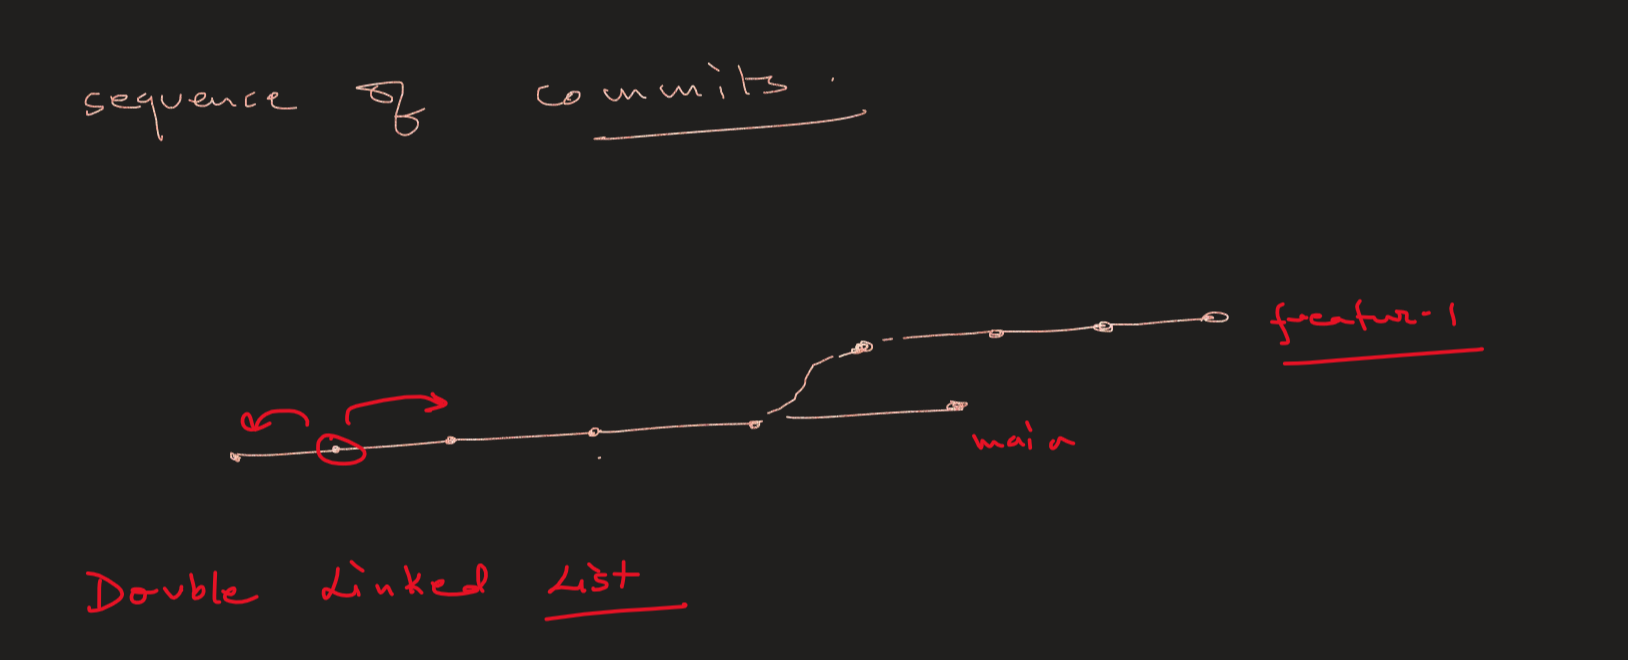 sequence of commits.
featur-1
main
Double Linked List